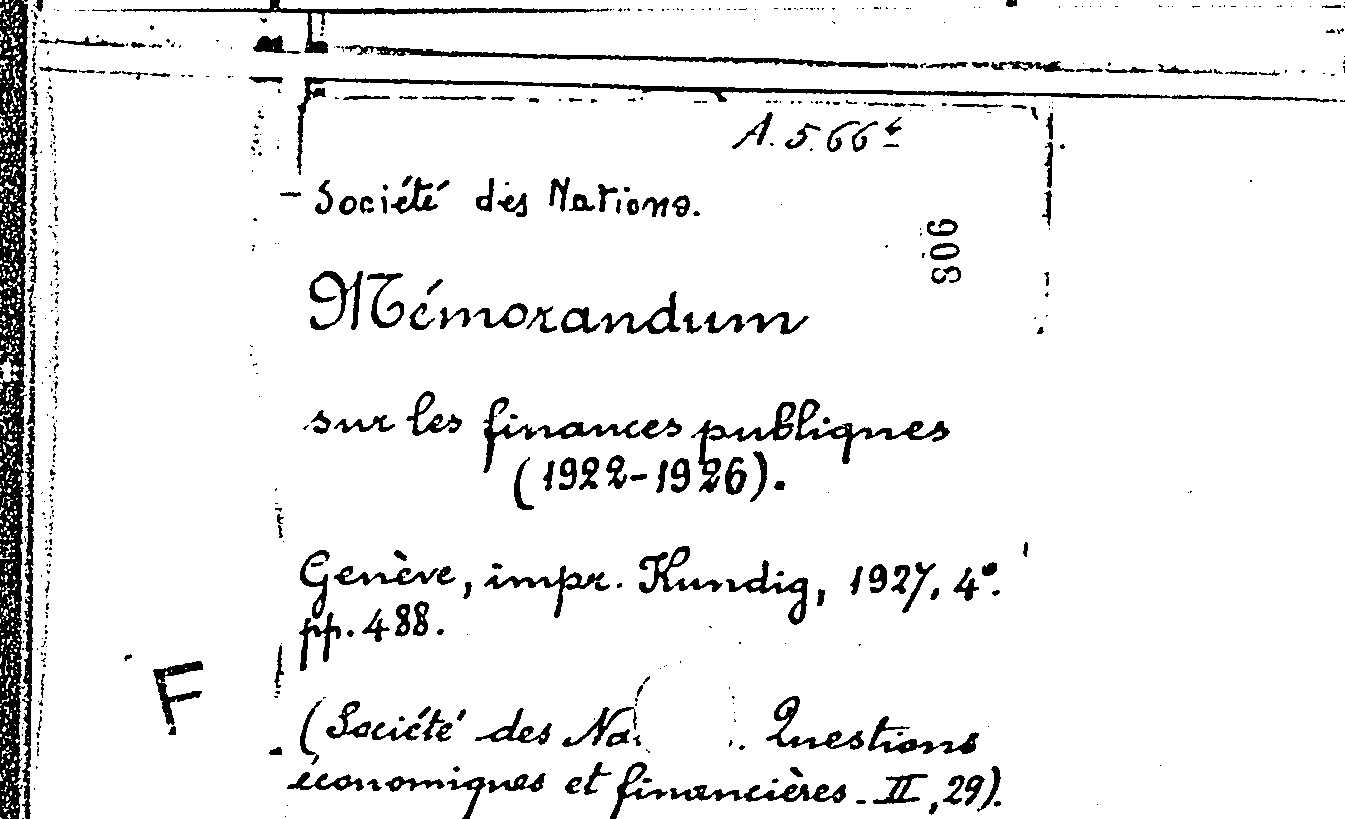 A. 5. 66
Société des Nations.
906
Mémorandum
sur les finances publiques
(1922-1926).
Genève, impr. Kundig, 1927, 4°.
pp. 488.
F
(Société des Na. . Questions
économiques et financières. II, 29).